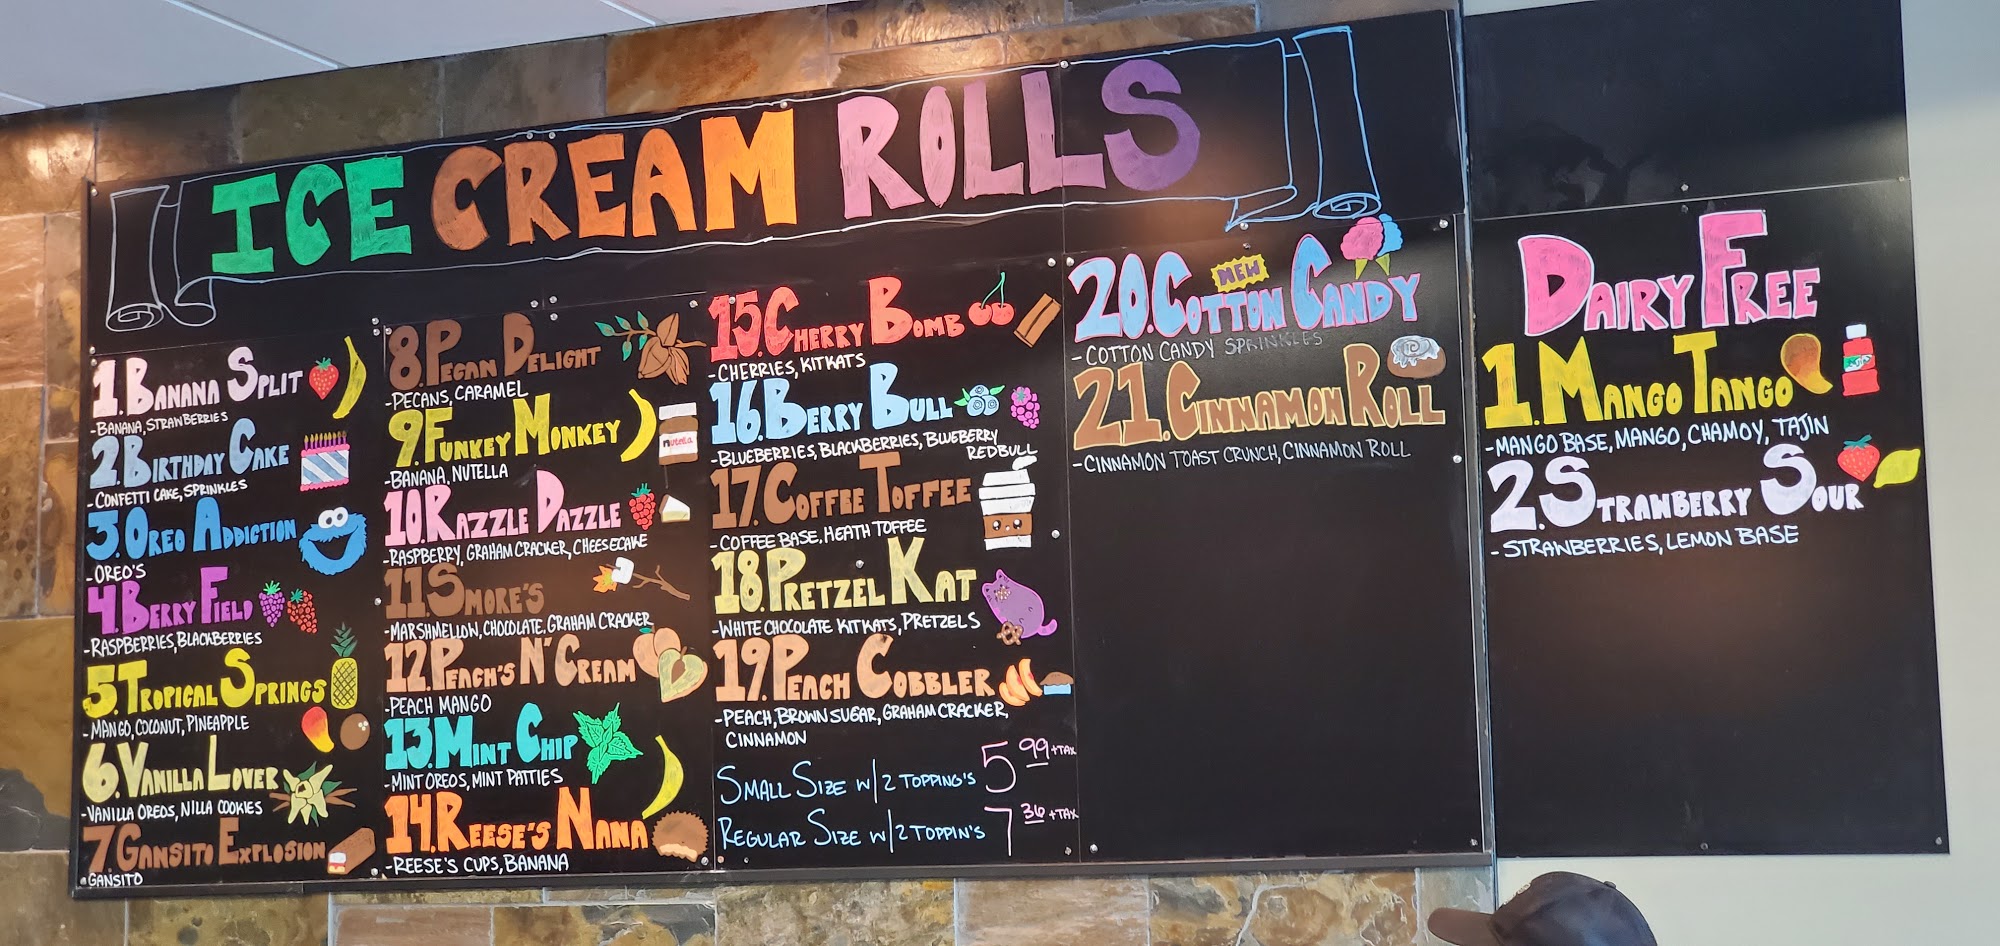 ICE CREAM ROLLS
1. BANANA SPLIT
-BANANA, STRAWBERRIES
2. BIRTHDAY CAKE
-CONFETTI CAKE, SPRINKLES
3. OREO ADDICTION
-OREO'S
4. BERRY FIELD
-RASPBERRIES, BLACKBERRIES
5. TROPICAL SPRINGS
-MANGO, COCONUT, PINEAPPLE
6. VANILLA LOVER
-VANILLA OREOS, NILLA COOKIES
7. GANSITO EXPLOSION
-GANSITO
8. PECAN DELIGHT
-PECANS, CARAMEL
9. FUNKEY MONKEY
nutella
-BANANA, NUTELLA
10. RAZZLE DAZZLE
-RASPBERRY, GRAHAM CRACKER, CHEESECAKE
11. SMORE'S
-MARSHMELLOW, CHOCOLATE, GRAHAM CRACKER
12. PEACH'S N' CREAM
-PEACH MANGO
13. MINT CHIP
-MINT OREOS, MINT PATTIES
14. REESE'S NANA
-REESE'S CUPS, BANANA
15. CHERRY BOMB
-CHERRIES, KITKATS
16. BERRY BULL
-BLUEBERRIES, BLACKBERRIES, BLUEBERRY
REDBULL
17. COFFEE TOFFEE
-COFFEE BASE, HEATH TOFFEE
18. PRETZEL KAT
-WHITE CHOCOLATE KITKATS, PRETZELS
19. PEACH COBBLER
-PEACH, BROWN SUGAR, GRAHAM CRACKER,
CINNAMON
SMALL SIZE W/2 TOPPING'S 5 99 +TAX
REGULAR SIZE W/2 TOPPIN'S 7 36 +TAX
NEW
20. COTTON CANDY
-COTTON CANDY SPRINKLES
21. CINNAMON ROLL
-CINNAMON TOAST CRUNCH, CINNAMON ROLL
DAIRY FREE
1. MANGO TANGO
-MANGO BASE, MANGO, CHAMOY, TAJIN
2. STRAWBERRY SOUR
-STRAWBERRIES, LEMON BASE